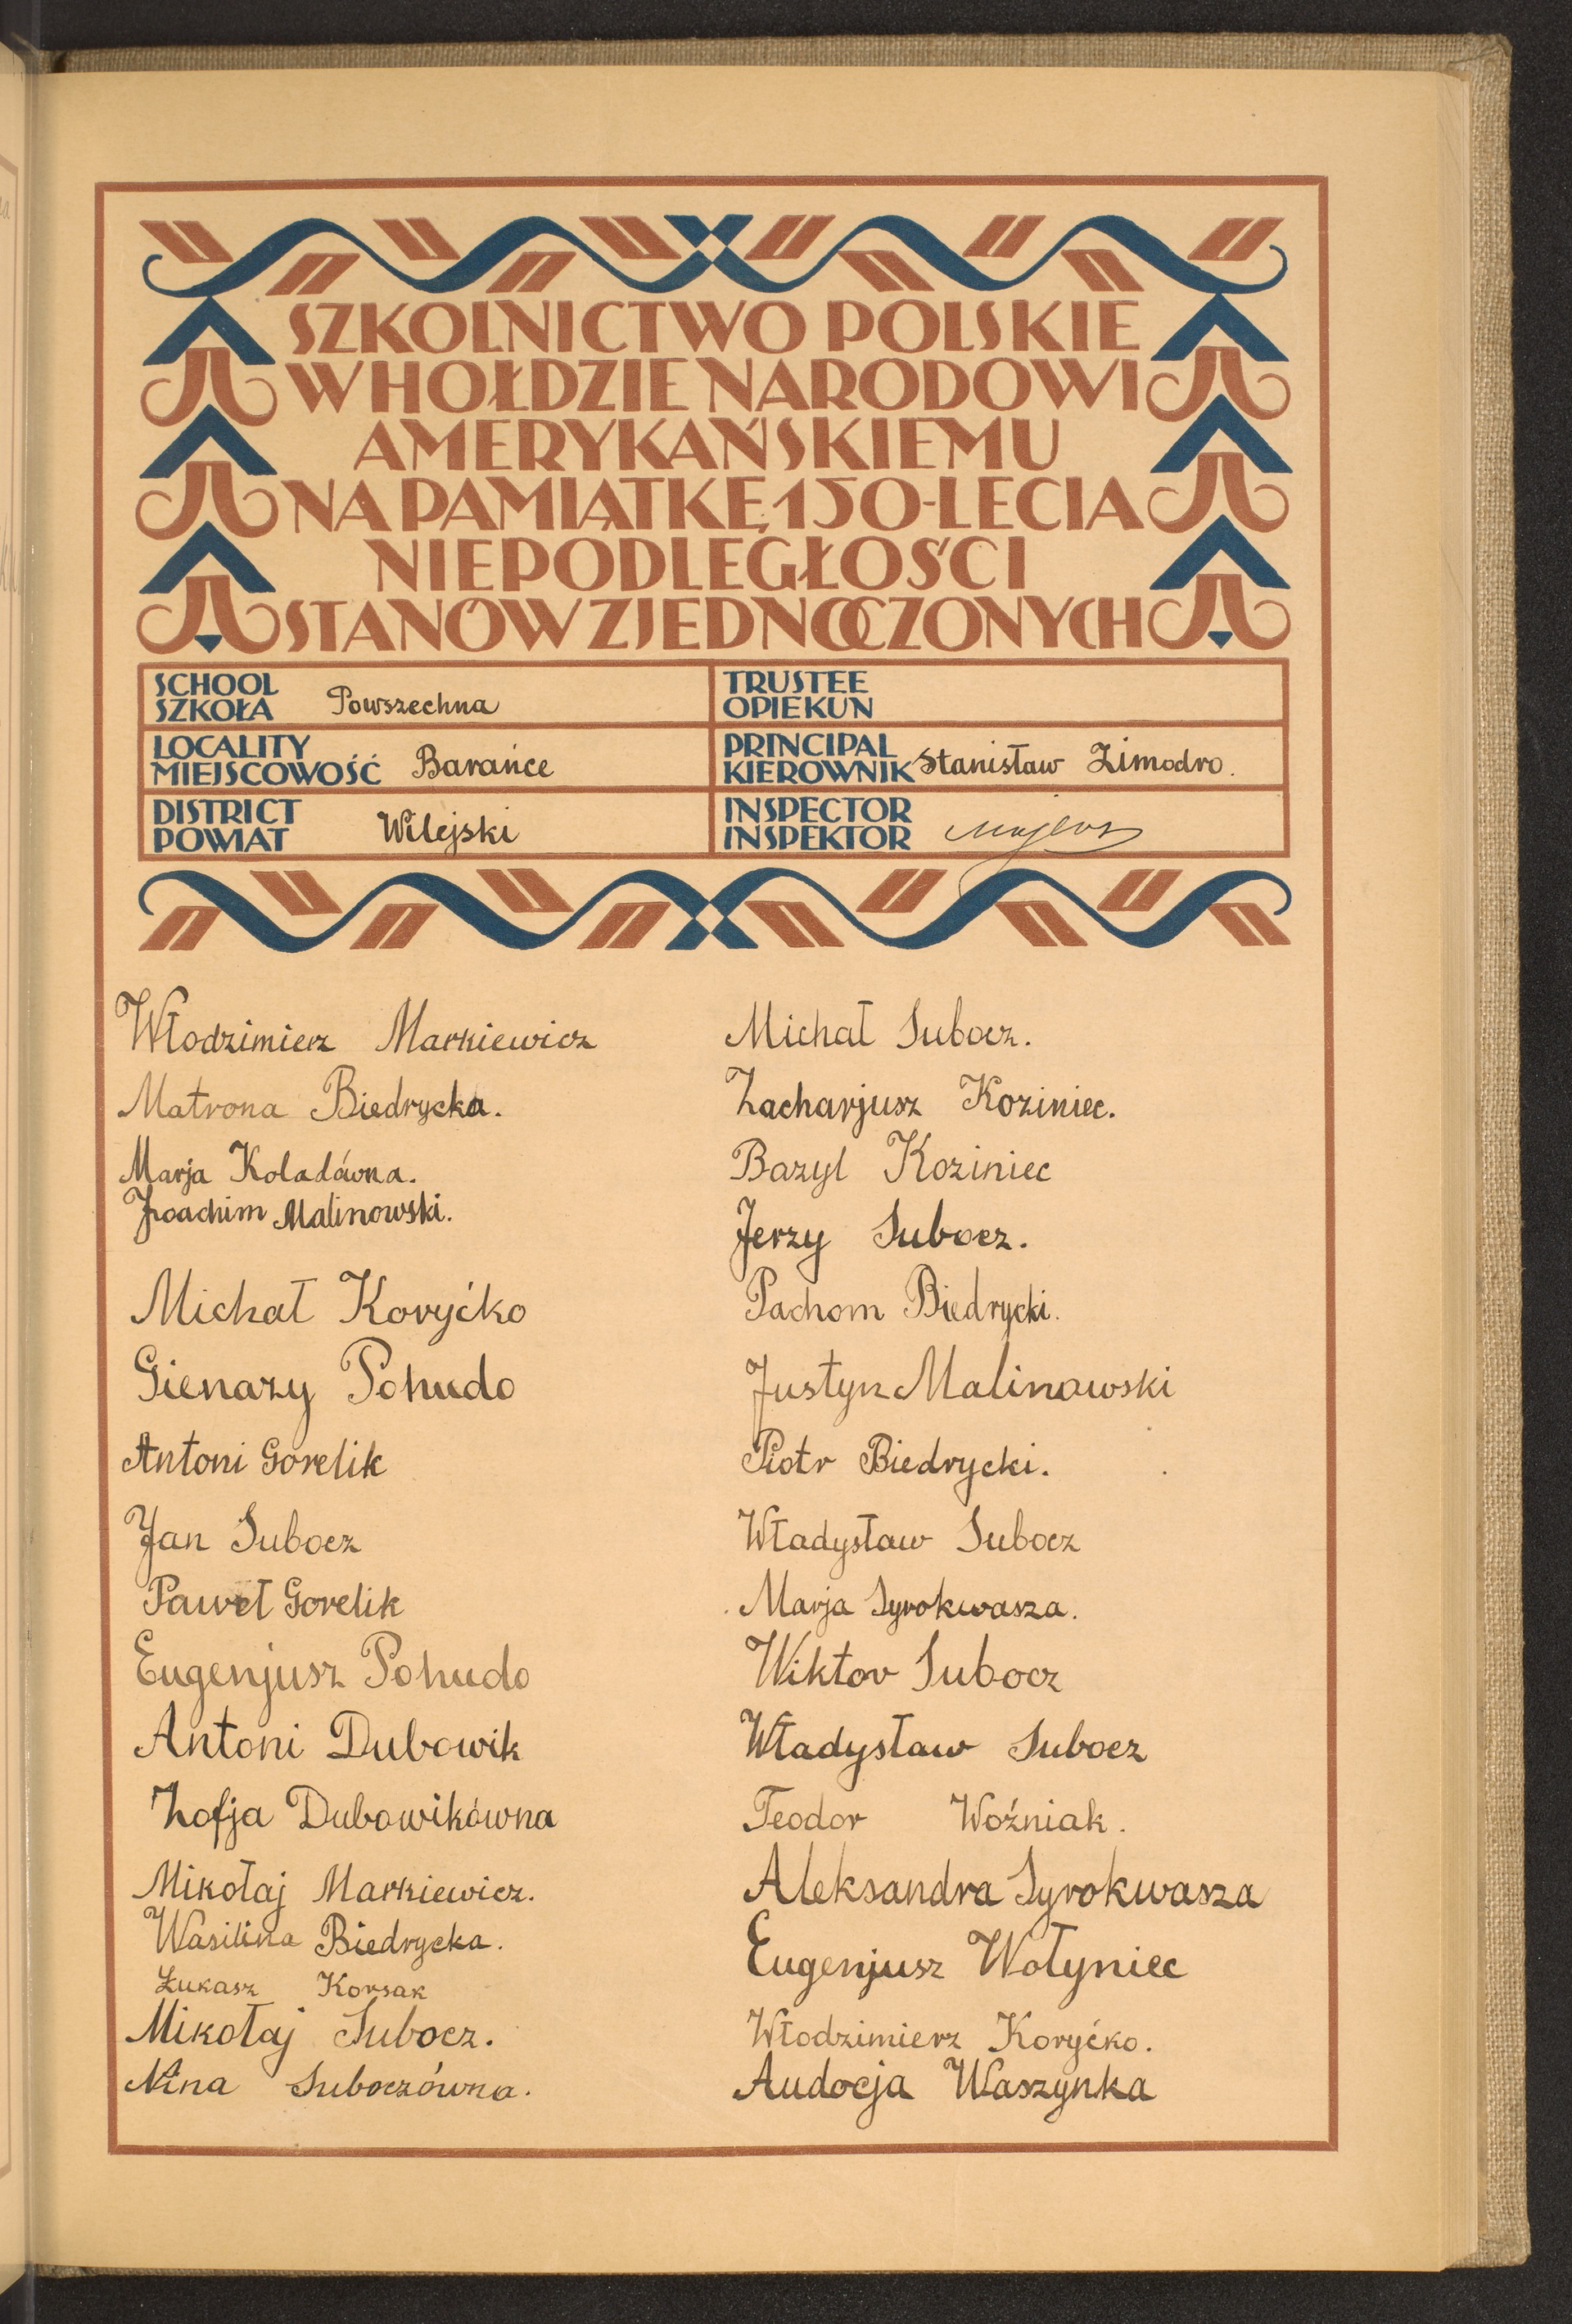 SZKOLNICTWO POLSKIE
W HOŁDZIE NARODOWI
AMERYKAŃSKIEMU
NA PAMIĄTKĘ 150-LECIA
NIEPODLEGŁOŚCI
STANÓW ZJEDNOCZONYCH
SCHOOL
SZKOŁA Powszechna
TRUSTEE
OPIEKUN
LOCALITY
MIEJSCOWOŚĆ Barańce
PRINCIPAL
KIEROWNIK Stanisław Zimodro.
DISTRICT
POWIAT Wilejski
INSPECTOR
INSPEKTOR
Włodzimierz Markiewicz
Matrona Biedrycka.
Marja Koladówna.
Joachim Malinowski.
Michał Koryćko
Gienazy Pohudo
Antoni Gorelik
Jan Subocz
Paweł Gorelik
Eugenjusz Pohudo
Antoni Dubowik
Zofja Dubowikówna
Mikołaj Markiewicz.
Wasilina Biedrycka.
Łukasz Korsak
Mikołaj Subocz.
Nina Suboczówna.
Michał Subocz.
Zacharjusz Koziniec.
Bazyl Koziniec
Jerzy Subocz.
Pachom Biedrycki.
Justyn Malinowski
Piotr Biedrycki.
Władysław Subocz
Marja Syrokwasza.
Wiktor Subocz
Władysław Subocz
Teodor Woźniak.
Aleksandra Syrokwasza
Eugenjusz Wołyniec
Włodzimierz Koryćko.
Audocja Waszynka